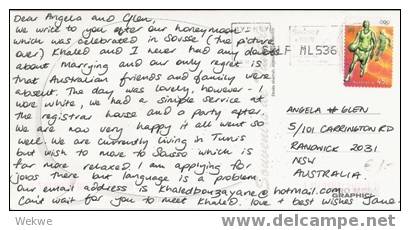 Dear Angela and Glen,
We write to you after our honeymoon
which was celebrated in Sousse (the picture
over) Khaled and I never had any doubts
about marrying and our only regret is
that Australian friends and family were
absent. The day was lovely, however - I
wore white, we had a simple service at
the registrar house and a party after.
We are now very happy it all went so
well. We are currently living in Tunis
but wish to move to Sousse which is
far more relaxed. I am applying for
jobs there but language is a problem.
Our email address is khaledbouzayane@hotmail.com
Can't wait for you to meet Khaled. love + best wishes Jane
SELF MLS36
ANGELA & GLEN
5/101 CARRINGTON RD
RANDWICK 2031
NSW
AUSTRALIA.
GRAPHIC
Wekwe
www.delcampe.net